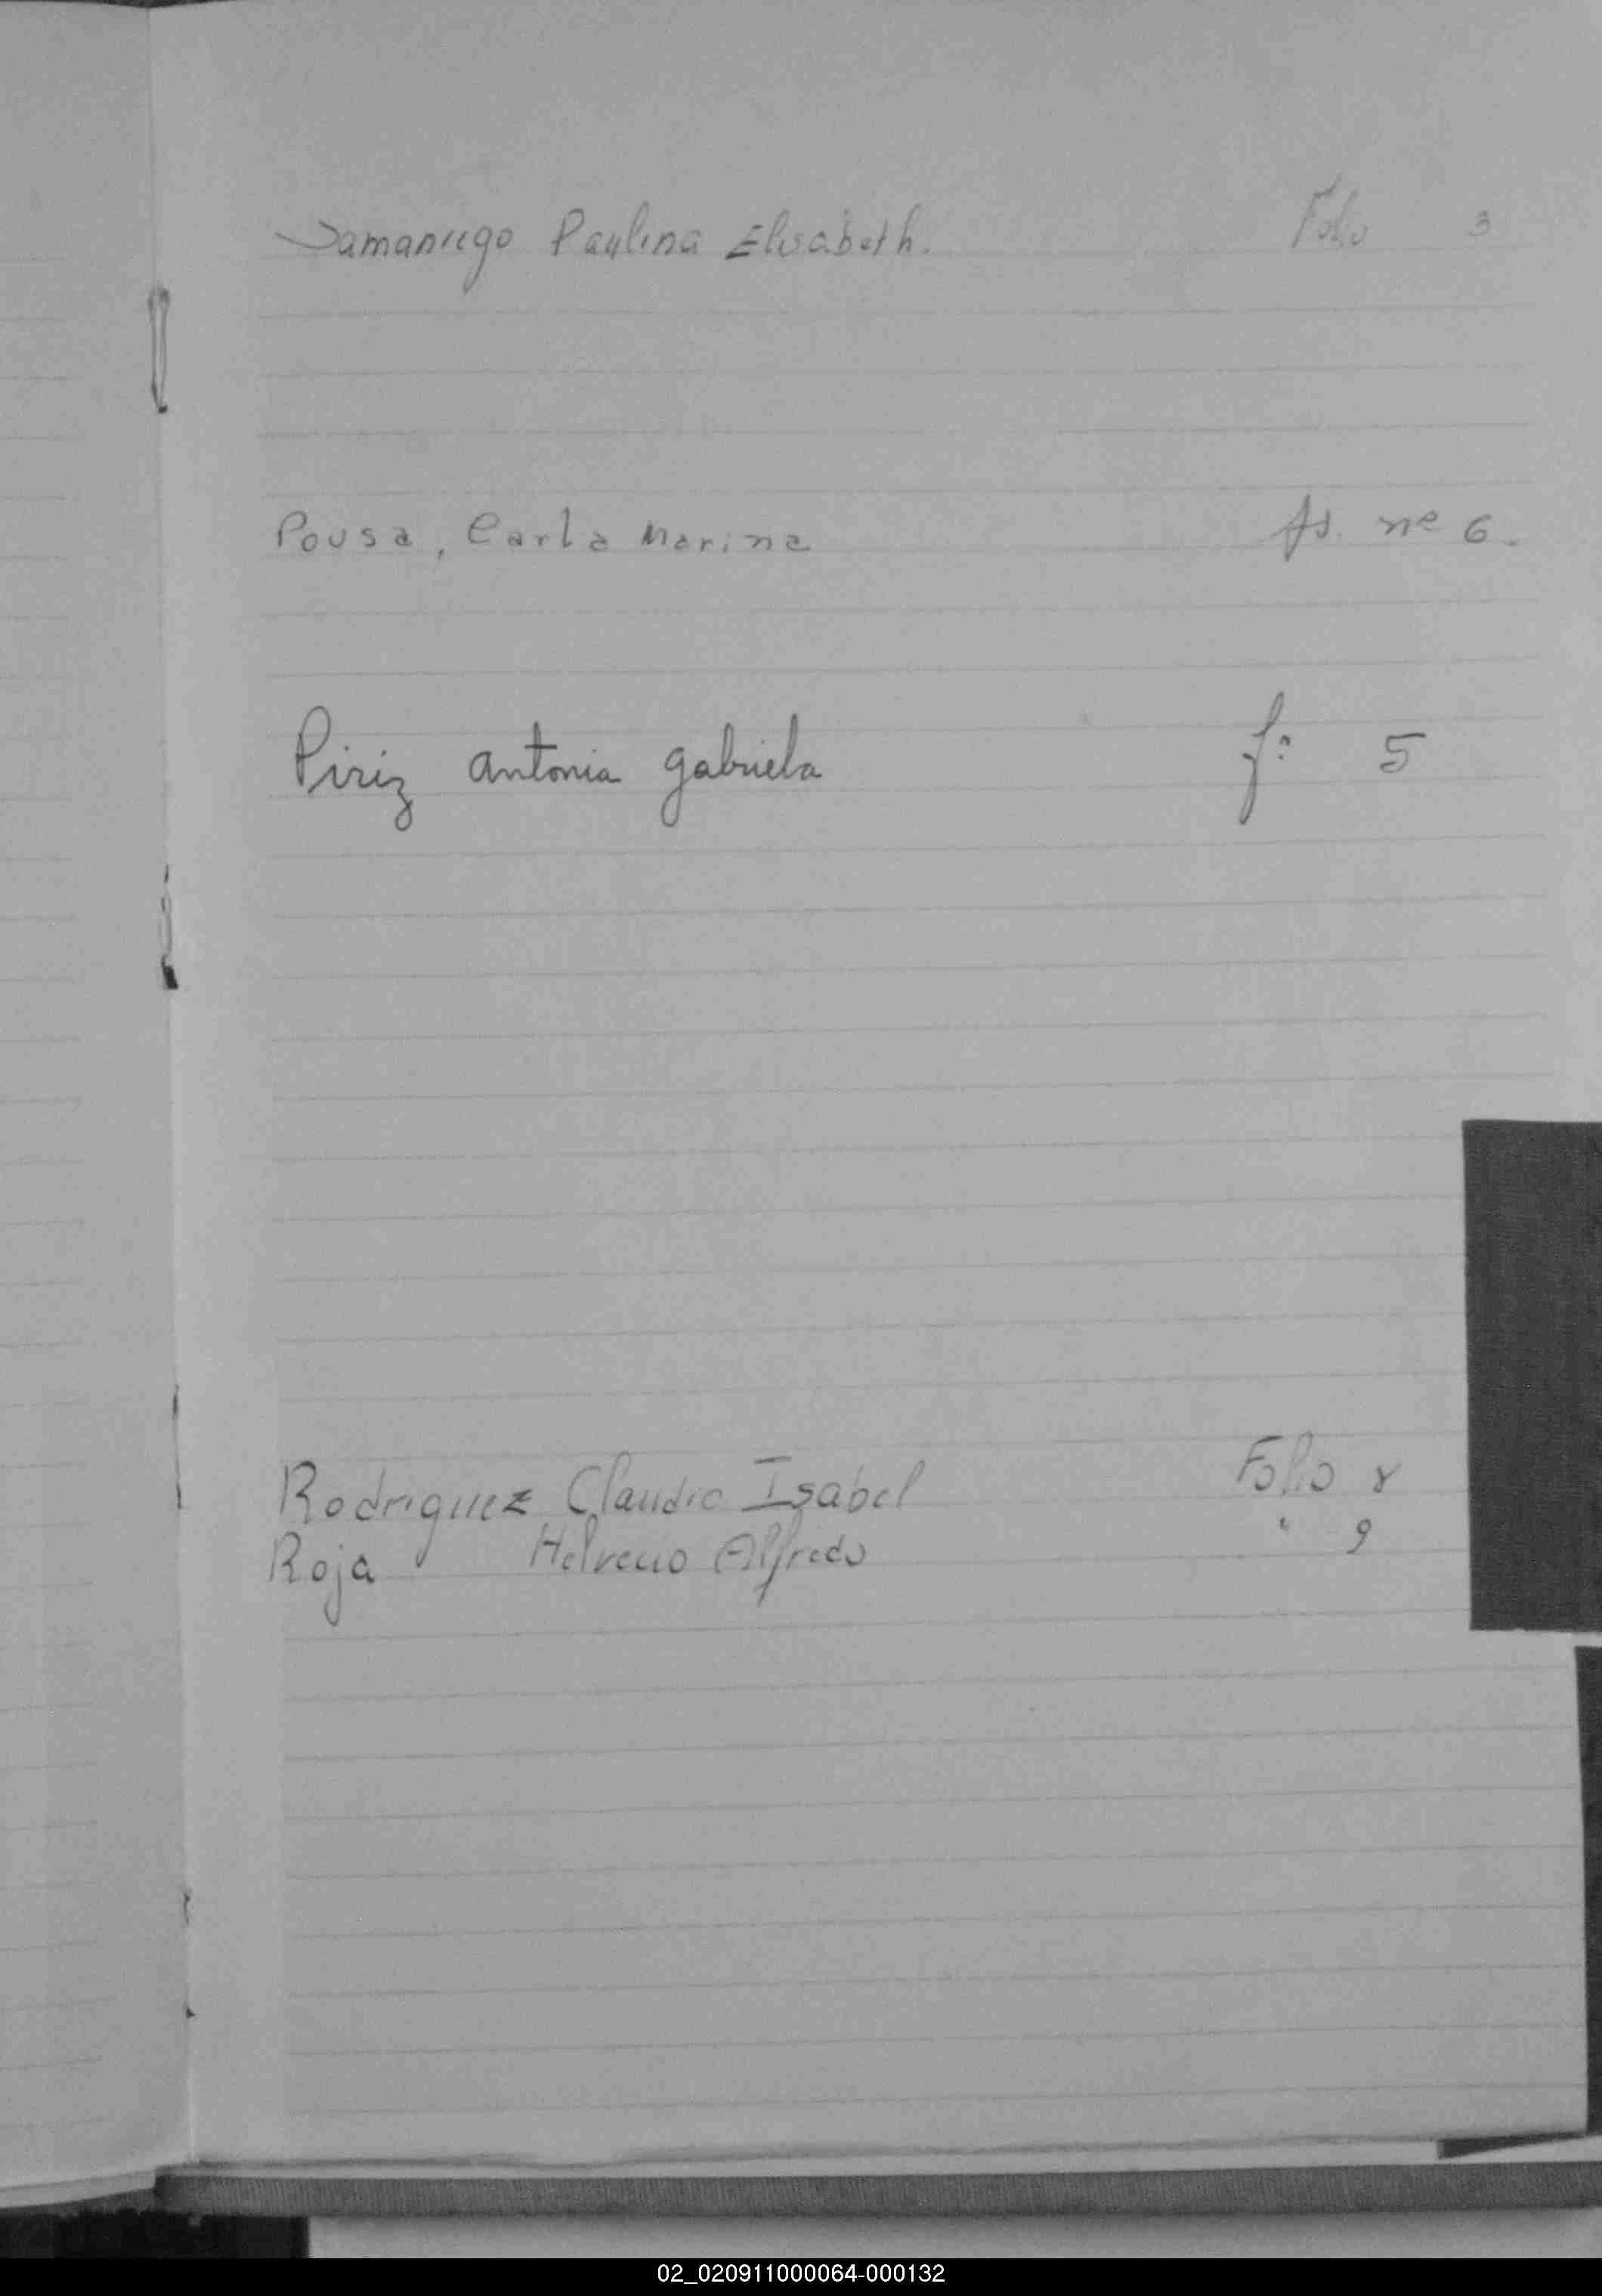 Samaniego Paulina Elisabeth. Folio 3
Pousa, Carla Marina fs. nº 6.
Piriz Antonia Gabriela fº 5
Rodriguez Claudia Isabel Folio 8
Roja Helvecio Alfredo " 9
02_020911000064-000132